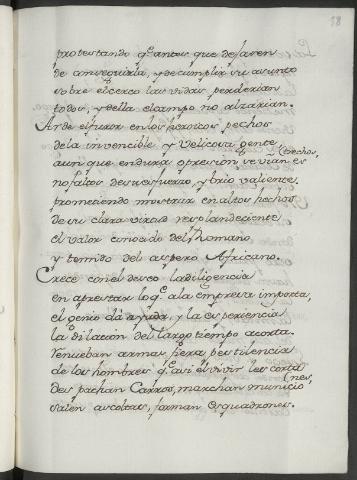 58
protestando q.e antes que dejaren
de conseguirla, y de cumplir su asunto
sobre el cerco las vidas perderian
todos, y della el campo no alzarian.
Arde el furor en los heroicos pechos
de la invencible y velicosa gente
aun que en dura opresion se vian es
(trechos,
no faltos de su esfuerzo, y brio valiente.
prometiendo mostrar en altos hechos
de su clara virtud resplandeciente
el valor conocido del Romano
y temido del aspero Africano.
Crece con el deseo la diligencia
en aprestar lo q.e a la empresa importa,
el genio dà ayuda, y la esperiencia
la dilacion del largo tiempo acorta.
renueban armas fiera pestilencia
de los hombres q.e asi el vivir les corta
(nes,
despachan Carros, marchan municio
salen escoltas, forman Esquadrones.